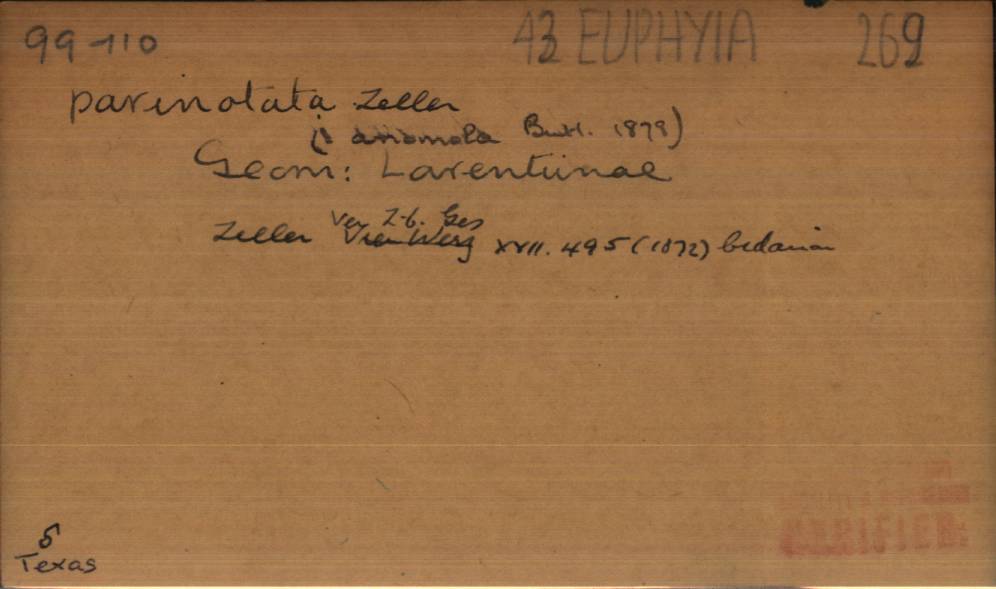 99-110 43 EUPHYIA 269
parinotata Zeller
(? anomala Butl. 1879)
Geom: Larentiinae
Ver Z-b. Ges
Zeller XXII. 495 (1872) Cidaria
VERIFIED
5
Texas